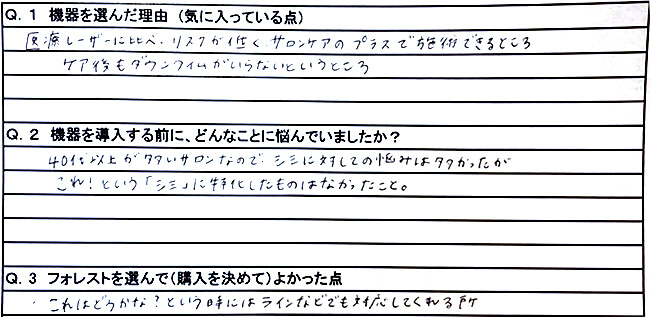 Q. 1 機器を選んだ理由（気に入っている点）
医療レーザーに比べ、リスクが低く、サロンケアのプラスで施術できるところ
ケア後もダウンタイムがいらないというところ
Q. 2 機器を導入する前に、どんなことに悩んでいましたか？
40代以上が多いサロンなので、シミに対しての悩みは多かったが
これ！という「シミ」に特化したものはなかったこと。
Q. 3 フォレストを選んで（購入を決めて）よかった点
・これはどうかな？という時にはラインなどでも対応してくれる所